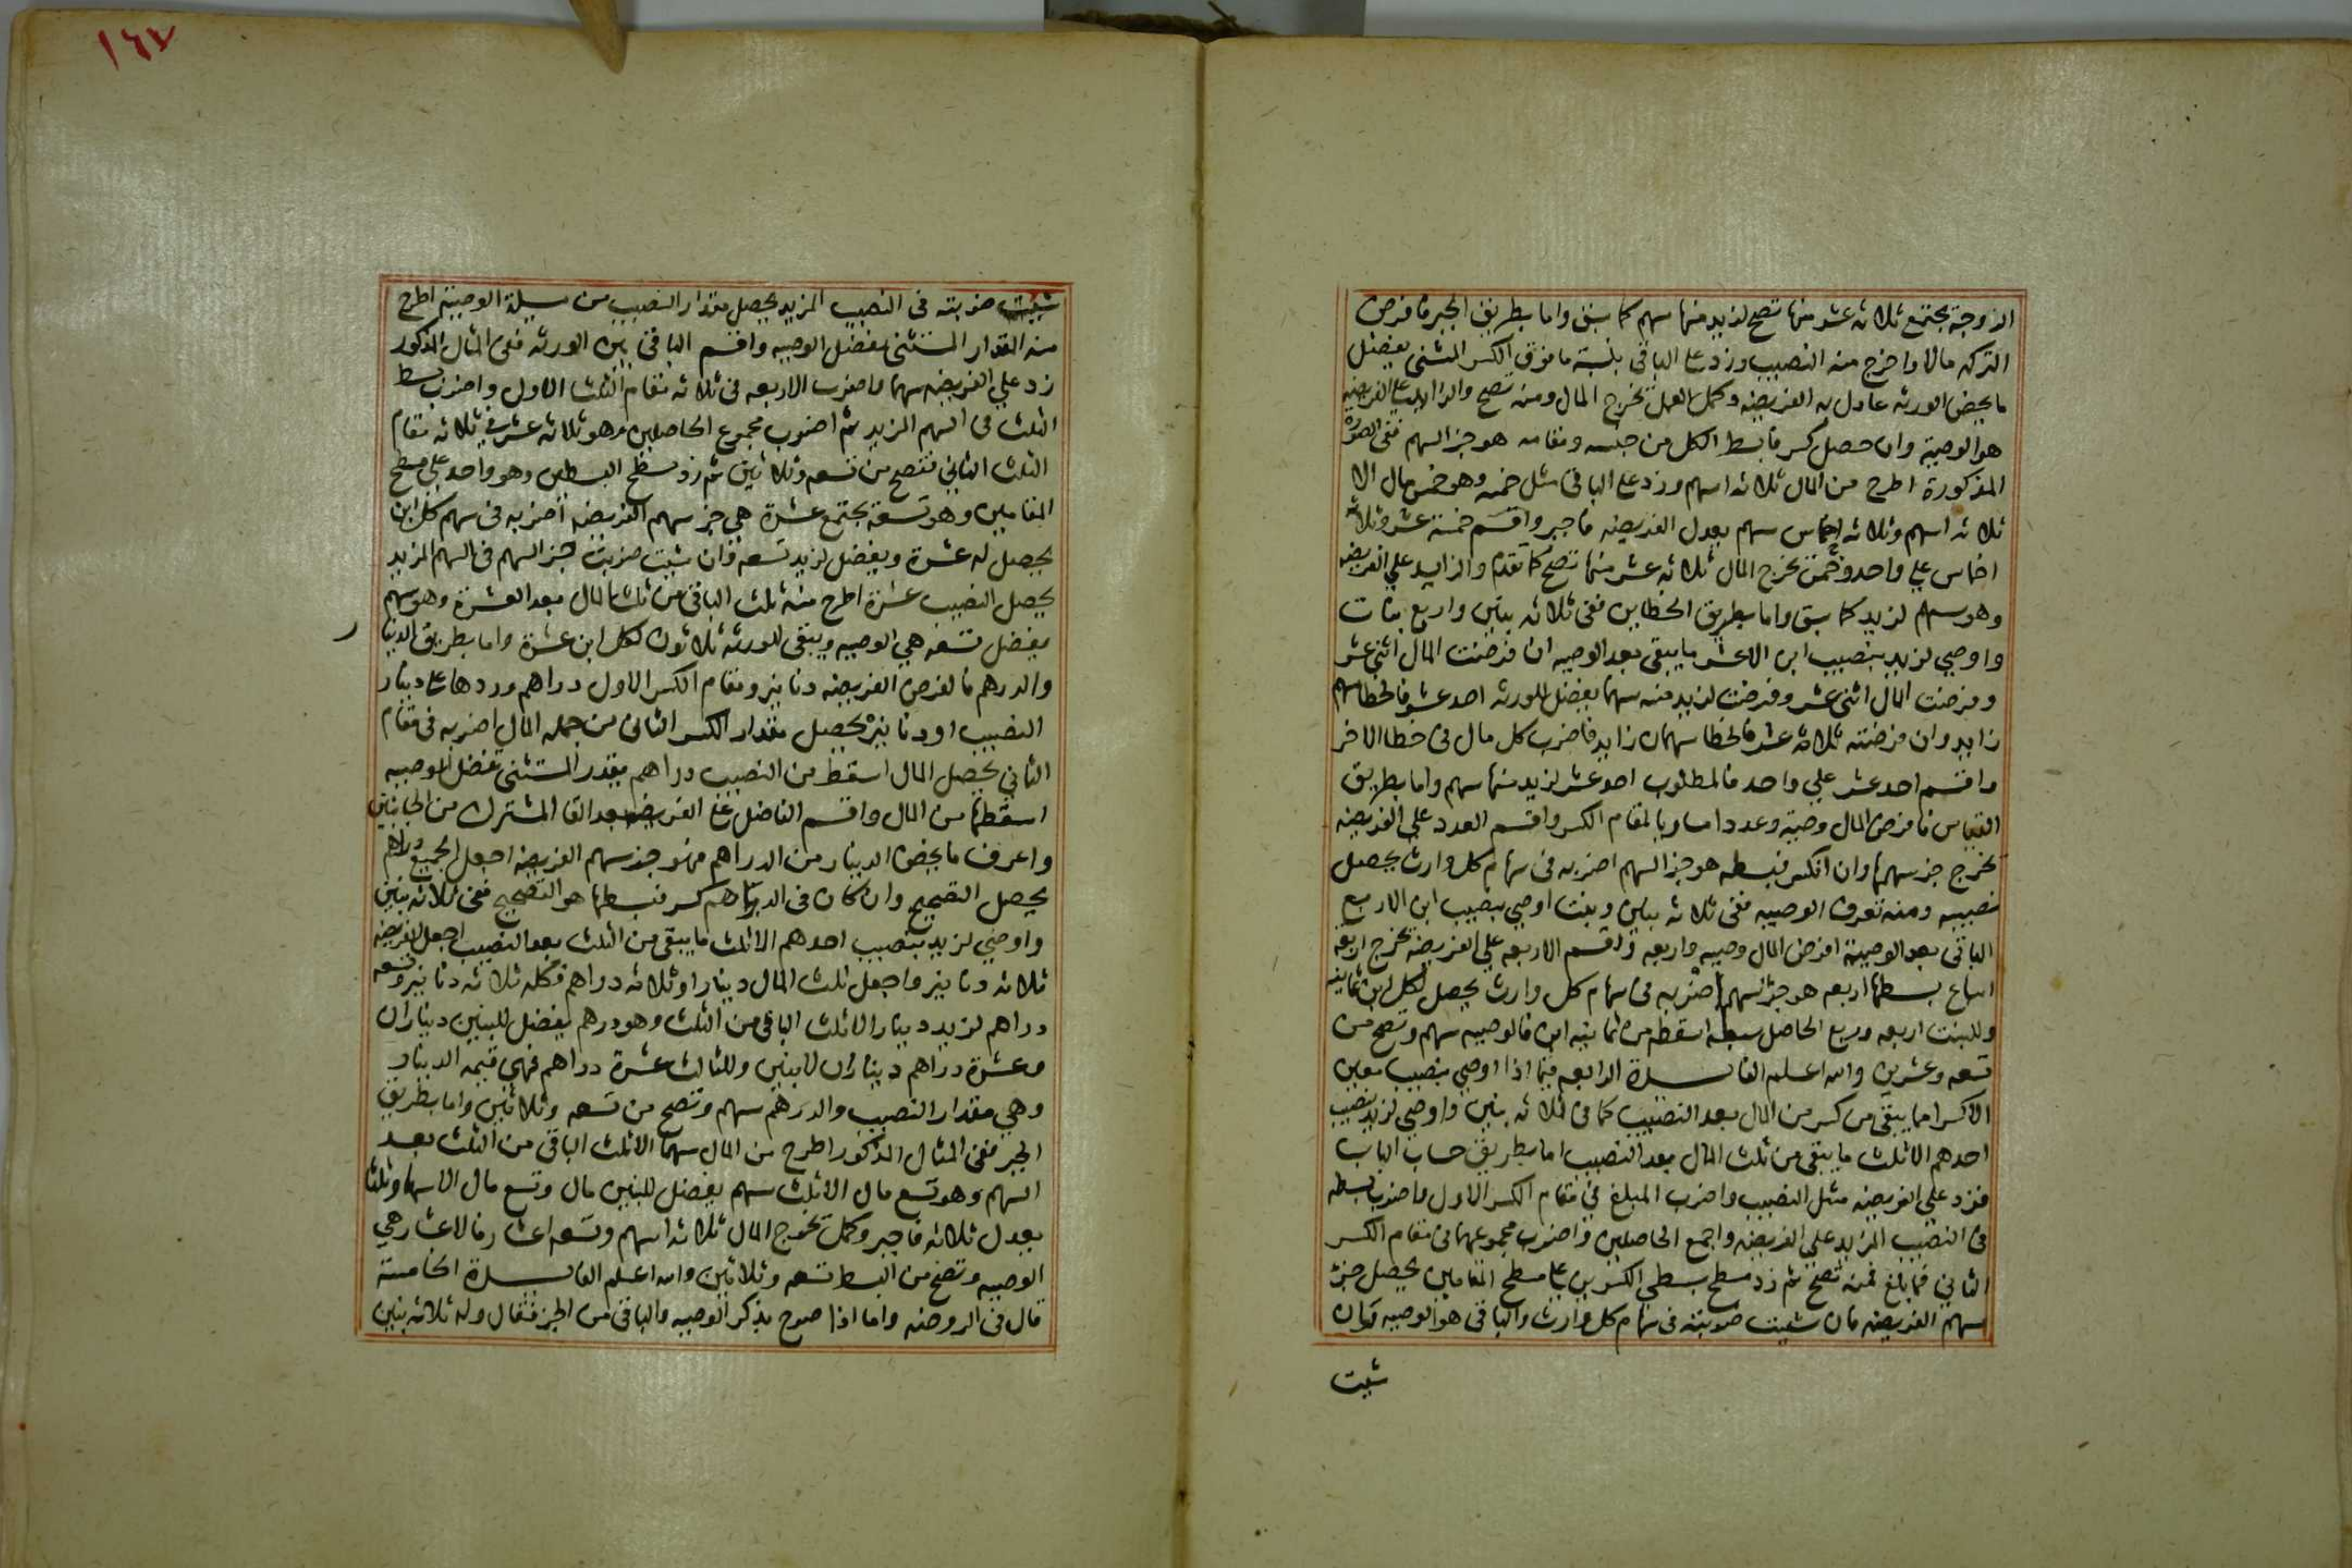 الزوجة يجتمع ثلاثه عشر منها تصح لزيد منها سهم كما سبق واما بطريق الجبر فافرض
التركه مالا واخرج منه النصيب وزد على الباقي بنسبة ما فوق الكسر المثنى يفضل
ما يخص الورثه عادل به الفريضه وكمل العمل يخرج المال ومنه تصح والزايد على الفريضه
هو الوصية وان حصل كسر فابسط الكل من جنسه ومقامه هو جزالسهم ففى الصوره
المذكورة اطرح من المال ثلاثه اسهم وزد على الباقي مثل خمسه وهو خمس مال الا
ثلاثه اسهم وثلاثه اخماس سهم يعدل الفريضه فاجبر واقسم خمسة عشر وثلاثه
اخماس علي واحد وخمس يخرج المال ثلاثه عشر منها تصح كما تقدم والزايد علي الفريضه
وهو سهم لزيد كما سبق واما بطريق الخطاين ففى ثلاثه بنين واربع بنات
واوصي لزيد بنصيب ابن الاعشر ما يبقى بعد الوصيه ان فرضت المال اثني عشر
وفرضت المال اثنى عشر وفرضت لزيد منه سهما يفضل للورثه احد عشر فالخطا سهم
زايد وان فرضته ثلاثه عشر فالخطا سهمان زايد فاضرب كل مال فى خطا الاخر
واقسم احد عشر علي واحد فالمطلوب احد عشر لزيد منها سهم واما بطريق
القياس فافرض المال وصيه وعددا مساويا لمقام الكسر واقسم العدد علي الفريضه
يخرج جز سهمها وان انكسر فبسطه هو جزالسهم اضربه فى سهام كل وارث يحصل
نصيبه ومنه تعرف الوصيه ففى ثلاثه بنين وبنت اوصي بنصيب ابن الا ربع
الباقى بعد الوصيه افرض المال وصيه واربعه واقسم الاربعه علي الفريضه يخرج اربعه
اسباع بسطها اربعه هو جزالسهم اضربه فى سهام كل وارث يحصل لكل ابن ثمانيه
وللبنت اربعه وربع الحاصل سبعه اسقطه من ثمانيه ابن فالوصيه سهم وتصح من
تسعه وعشرين والله اعلم الفايـــدة الرابعه فيما اذا اوصي بنصيب معين
الا كسرا مما يبقى من كسر من المال بعد النصيب كما فى ثلاثه بنين واوصي لزيد بنصيب
احدهم الاثلث ما يبقى من ثلث المال بعد النصيب اما بطريق حساب الباب
فزد علي الفريضه مثل النصيب واضرب المبلغ في مقام الكسر الاول واضرب بسطه
فى النصيب المزايد علي الفريضه واجمع الحاصلين واضرب مجموعهما فى مقام الكسر
الثاني فما بلغ فمنه تصح ثم زد مسطح بسطي الكسرين على مسطح المقامين يحصل جز
سهم الفريضه فان شيت ضربته فى سهام كل وارث والباقى هو الوصيه وان
شيت
١٦٧
شيت ضربته فى النصيب المزيد يحصل مقدار النصيب من الوصية اطرح
منه المقدار المستثنى يفضل الوصيه واقسم الباقى بين الورثه ففى المثال المذكور
زد علي الفريضه سهما واضرب الاربعه فى ثلاثه مقام الثلث الاول واضرب بسط
الثلث فى السهم المزيد ثم اضرب مجموع الحاصلين وهو ثلاثه عشر فى ثلاثه مقام
الثلث الثاني فتصح من تسعه وثلاثين ثم زد مسطح البسطين وهو واحد علي مسطح
المقامين وهو تسعة يجتمع عشرة هي جز سهم الفريضه اضربه فى سهم كل ابن
يحصل له عشرة ويفضل لزيد تسعه وان شيت ضربت جز السهم فى السهم المزيد
يحصل النصيب عشرة اطرح منه ثلث الباقى من ثلث المال بعد العشرة وهو سهم
يفضل تسعه هي الوصيه ويبقى للورثه ثلاثون لكل ابن عشرة واما بطريق الدينار
والدرهم فافرض الفريضه دنانير ومقام الكسر الاول دراهم وزدها على دينار
النصيب او دنانيره يحصل مقدار الكسر الثانى من جمله المال اضربه فى مقام
الثانى يحصل المال اسقط من النصيب دراهم بقدر المستثنى تفضل الوصيه
اسقطها من المال واقسم الفاضل على الفريضه بعد القا المشترك من الجانبين
واعرف ما يخص الدينار من الدراهم فهو جز سهم الفريضه اجعل الجميع دراهم
يحصل التصحيح وان كان فى الدراهم كسر فبسطها هو التصحيح ففى ثلاثه بنين
واوصى لزيد بنصيب احدهم الا ثلث ما يبقى من الثلث بعد النصيب اجعل الفريضه
ثلاثه دنانير واجعل ثلث المال دينارا وثلاثه دراهم فكله ثلاثه دنانير وتسعه
دراهم لزيد دينار الا ثلث الباقى من الثلث وهو درهم يفضل للبنين ديناران
وعشرة دراهم ديناران لابنين وللثالث عشرة دراهم فهي قيمه الدينار
وهي مقدار النصيب والدرهم سهم وتصح من تسعه وثلاثين واما بطريق
الجبر ففى المثال المذكور اطرح من المال سهما الا ثلث الباقى من الثلث بعد
السهم وهو تسع مال الا ثلث سهم يفضل للبنين مال وتسع مال الا سهما وثلثا
يعدل ثلاثه فاجبر وكمل يخرج المال ثلاثه اسهم وتسعه اعشار فالاعشار هي
الوصيه وتصح من البسط تسعه وثلاثين والله اعلم الفايـــدة الخامسة
قال فى الروضه واما اذا صرح بذكر الوصيه والباقى من الجز فقال وله ثلاثه بنين